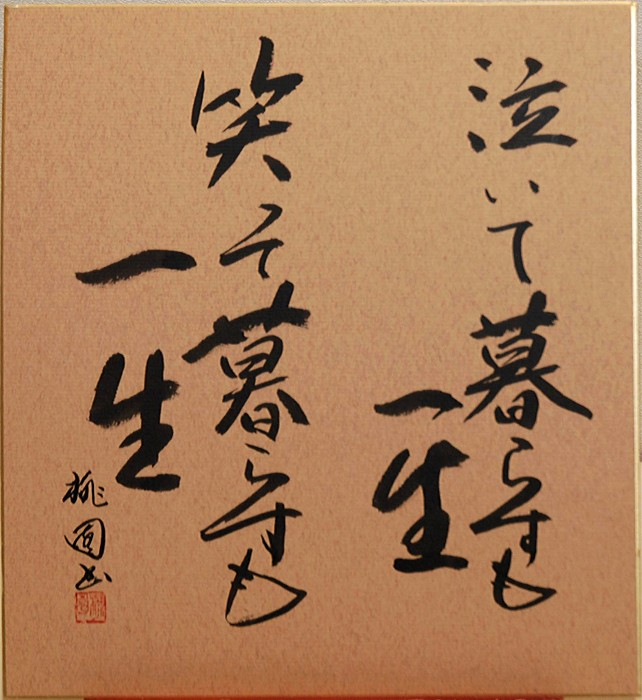 泣いて暮らすも
一生
笑って暮らすも
一生
桃園書